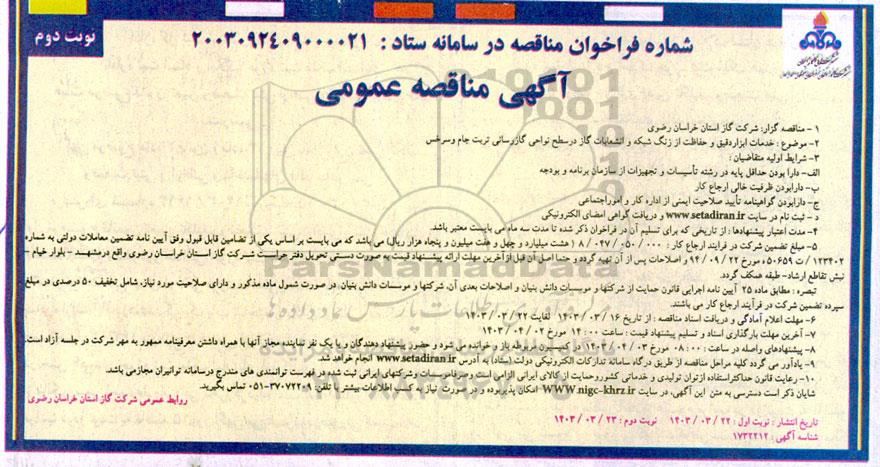 نوبت دوم
شماره فراخوان مناقصه در سامانه ستاد : ۲۰۰۳۰۹۲۴۰۹۰۰۰۰۲۱
آگهی مناقصه عمومی
۱- مناقصه گزار: شرکت گاز استان خراسان رضوی
۲- موضوع : خدمات ابزاردقیق و حفاظت از زنگ شبکه و انشعابات گاز درسطح نواحی گازرسانی تربت جام وسرخس
۳- شرایط اولیه متقاضیان :
الف- دارا بودن حداقل پایه در رشته تأسیسات و تجهیزات از سازمان برنامه و بودجه
ب- دارابودن ظرفیت خالی ارجاع کار
ج- دارابودن گواهینامه تأیید صلاحیت ایمنی از اداره کار و اموراجتماعی
د - ثبت نام در سایت www.setadiran.ir و دریافت گواهی امضای الکترونیکی
۴- مدت اعتبار پیشنهادها : از تاریخی که برای تسلیم آن در فراخوان ذکر شده تا مدت سه ماه می بایست معتبر باشد.
۵- مبلغ تضمین شرکت در فرایند ارجاع کار : ۸/۰۴۷/۰۵۰/۰۰۰ ( هشت میلیارد و چهل و هفت میلیون و پنجاه هزار ریال) می باشد که می بایست بر اساس یکی از تضامین قابل قبول وفق آیین نامه تضمین معاملات دولتی به شماره
۱۲۳۴۰۲ / ت ۵۰۶۵۹ ه مورخ ۲۲ / ۰۹ / ۹۴ و اصلاحات پس از آن تهیه گردد و حتما اصل آن قبل از آخرین مهلت ارائه پیشنهاد قیمت به صورت دستی تحویل دفتر حراست شرکت گاز استان خراسان رضوی واقع درمشهد - بلوار خیام -
نبش تقاطع ارشاد- طبقه همکف گردد.
تبصره : مطابق ماده ۲۵ آیین نامه اجرایی قانون حمایت از شرکتها و موسسات دانش بنیان و اصلاحات بعدی آن، شرکتها و موسسات دانش بنیان در صورت شمول ماده مذکور و دارای صلاحیت مورد نیاز، شامل تخفیف ۵۰ درصدی در مبلغ
سپرده تضمین شرکت در فرآیند ارجاع کار می باشند.
۶- مهلت اعلام آمادگی و دریافت اسناد مناقصه : از تاریخ ۱۶ / ۰۳ / ۱۴۰۳ لغایت ۲۲ / ۰۳ / ۱۴۰۳
۷- آخرین مهلت بارگذاری اسناد و تسلیم پیشنهاد قیمت : ساعت ۱۴:۰۰ مورخ ۰۲ / ۰۴ / ۱۴۰۳
۸- پیشنهادهای واصله در ساعت : ۰۸:۰۰ مورخ ۰۳ / ۰۴ / ۱۴۰۳ در کمیسیون مربوطه باز و خوانده می شود و حضور پیشنهاد دهندگان و یا یک نفر نماینده مجاز آنها با همراه داشتن معرفینامه ممهور به مهر شرکت در جلسه آزاد است.
۹- یادآور می گردد کلیه مراحل مناقصه از طریق درگاه سامانه تدارکات الکترونیکی دولت (ستاد) به آدرس www.setadiran.ir انجام خواهد شد.
۱۰- رعایت قانون حداکثراستفاده ازتوان تولیدی و خدماتی کشوروحمایت از کالای ایرانی الزامی است وصرفاموسسات وشرکتهای ایرانی ثبت شده در فهرست توانمندی های مندرج درسامانه توانیران مجازمی باشد.
شایان ذکر است دسترسی به متن این آگهی، در سایت WWW.nigc-khrz.ir امکان پذیربوده و در صورت نیاز به کسب اطلاعات بیشتر با تلفن: ۳۷۰۷۲۲۰۹-۰۵۱ تماس بگیرید.
روابط عمومی شرکت گاز استان خراسان رضوی
تاریخ انتشار : نوبت اول : ۲۲ / ۰۳ / ۱۴۰۳ نوبت دوم : ۲۳ / ۰۳ / ۱۴۰۳
شناسه آگهی : ۱۷۳۲۲۱۲
ParsNamadData